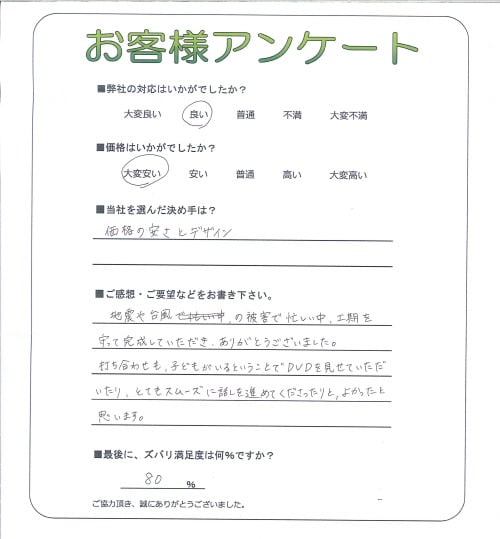 お客様アンケート
■弊社の対応はいかがでしたか？
大変良い 良い 普通 不満 大変不満
■価格はいかがでしたか？
大変安い 安い 普通 高い 大変高い
■当社を選んだ決め手は？
価格の安さとデザイン
■ご感想・ご要望などをお書き下さい。
地震や台風の被害で忙しい中、工期を
守って完成していただき、ありがとうございました。
打ち合わせも、子どもがいるということでDVDを見せていただ
いたり、とてもスムーズに話しを進めてくださったりと、よかったと
思います。
■最後に、ズバリ満足度は何%ですか？
80 %
ご協力頂き、誠にありがとうございました。